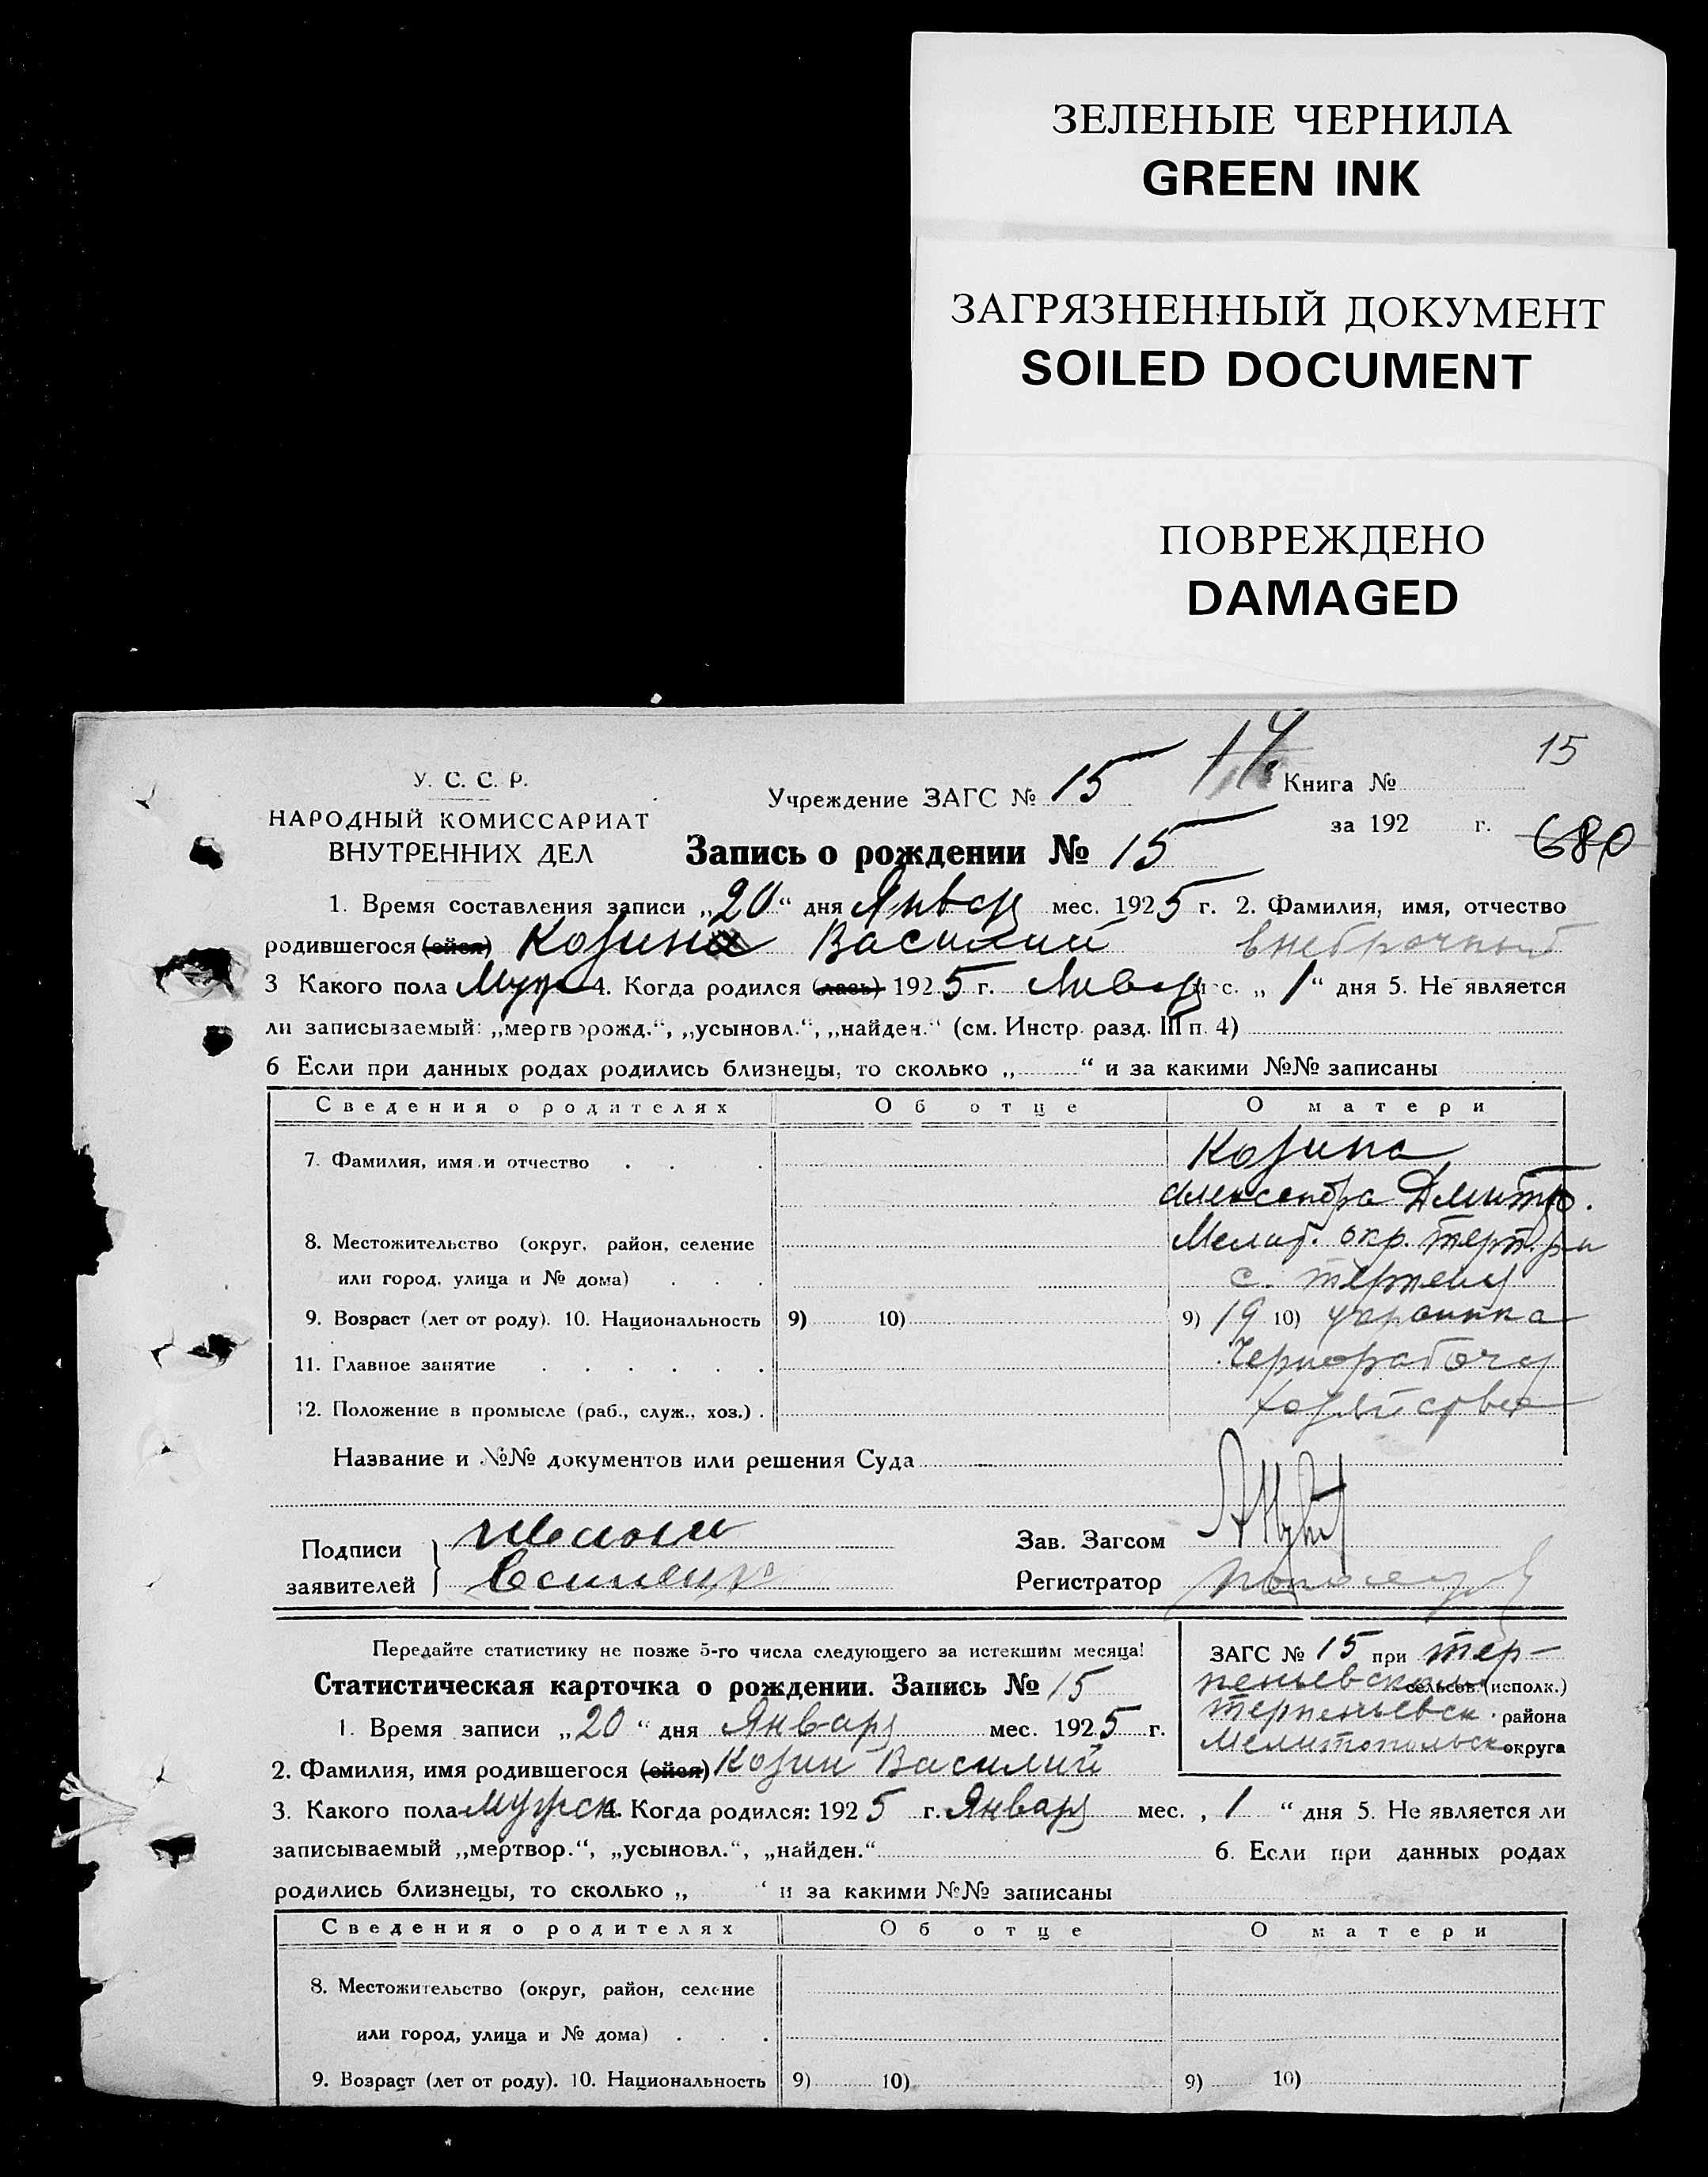 ЗЕЛЕНЫЕ ЧЕРНИЛА
GREEN INK
ЗАГРЯЗНЕННЫЙ ДОКУМЕНТ
SOILED DOCUMENT
ПОВРЕЖДЕНО
DAMAGED
15
У. С. С. Р.
НАРОДНЫЙ КОМИССАРИАТ
ВНУТРЕННИХ ДЕЛ
Учреждение ЗАГС № 15
14
Книга №
за 192 г.
680
Запись о рождении № 15
1. Время составления записи „20“ дня Январ мес. 1925 г. 2. Фамилия, имя, отчество
родившегося (ейся) Козин Василий внебрачный
3 Какого пола Муж 4. Когда родился (лась) 1925 г. Январ мес. „1“ дня 5. Не является
ли записываемый: „мертворожд.“, „усыновл.“, „найден.“ (см. Инстр. разд. III п. 4)
6 Если при данных родах родились близнецы, то сколько „ “ и за какими №№ записаны
Сведения о родителях Об отце О матери
7. Фамилия, имя и отчество Козина
Александра Дмитр.
8. Местожительство (округ, район, селение Мелит. окр. Терп. р-н
или город, улица и № дома) с. Терпение
9. Возраст (лет от роду). 10. Национальность 9) 10) 9) 19 10) украинка
11. Главное занятие Чернорабоч
12. Положение в промысле (раб., служ., хоз.)
Название и №№ документов или решения Суда
Подписи
заявителей
Зав. Загсом
Регистратор
Передайте статистику не позже 5-го числа следующего за истекшим месяца!
Статистическая карточка о рождении. Запись № 15
ЗАГС № 15 при Тер-
пеньевском сельсов. (исполк.)
Терпеньевск. района
Мелитопольск округа
1. Время записи „20“ дня Января мес. 1925 г.
2. Фамилия, имя родившегося (ейся) Козин Василий
3. Какого пола мужск 4. Когда родился: 1925 г. Января мес. „1“ дня 5. Не является ли
записываемый „мертвор.“, „усыновл.“, „найден.“ 6. Если при данных родах
родились близнецы, то сколько „ “ и за какими №№ записаны
Сведения о родителях Об отце О матери
8. Местожительство (округ, район, селение
или город, улица и № дома)
9. Возраст (лет от роду). 10. Национальность 9) 10) 9) 10)